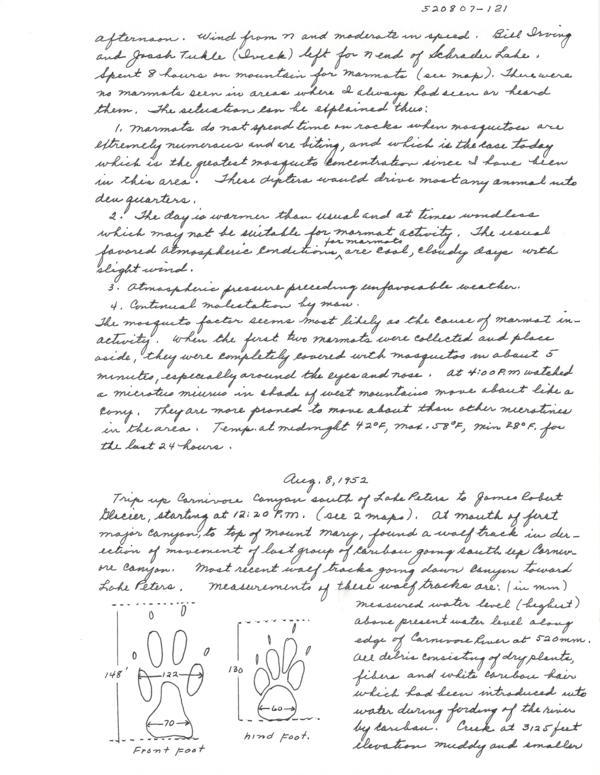 520807-121
afternoon. Wind from N and moderate in speed. Bill Irving
and Joash Tukle (Irvik) left for N end of Schrader Lake.
Spent 8 hours on mountain for marmots (see map). There were
no marmots seen in areas where I always had seen or heard
them. The situation can be explained thus:
1. Marmots do not spend time on rocks when mosquitoes are
extremely numerous and are biting, and which is the case today
which is the greatest mosquito concentration since I have been
in this area. These diptera would drive most any animal into
den quarters.
2. The day is warmer than usual and at times windless
which may not be suitable for marmot activity. The usual
favored atmospheric conditions for marmots are cool, cloudy days with
slight wind.
3. Atmospheric pressure preceding unfavorable weather.
4. Continual molestation by man.
The mosquito factor seems most likely as the cause of marmot in-
activity. When the first two marmots were collected and place
aside, they were completely covered with mosquitos in about 5
minutes, especially around the eyes and nose. At 4:00 P.M watched
a microtus miurus in shade of west mountains move about like a
cony. They are more proned to move about than other microtines
in the area. Temp. at midnight 42°F, max. 58°F, min 28°F. for
the last 24 hours.
Aug. 8, 1952
Trip up Carnivore Canyon south of Lake Peters to James Robert
Glacier, starting at 12:20 P.M. (see 2 maps). At mouth of first
major canyon, to top of Mount Mary, found a wolf track in dir-
ection of movement of last group of caribou going south up Carniv-
ore Canyon. Most recent wolf tracks going down canyon toward
Lake Peters. Measurements of these wolf tracks are: (in mm)
148'
122
70
Front Foot
130
60
hind Foot.
Measured water level (highest)
above present water level along
edge of Carnivore River at 520mm.
All debris consisting of dry plants,
fibers and white caribou hair
which had been introduced into
water during fording of the river
by caribou. Creek at 3125 feet
elevation muddy and smaller